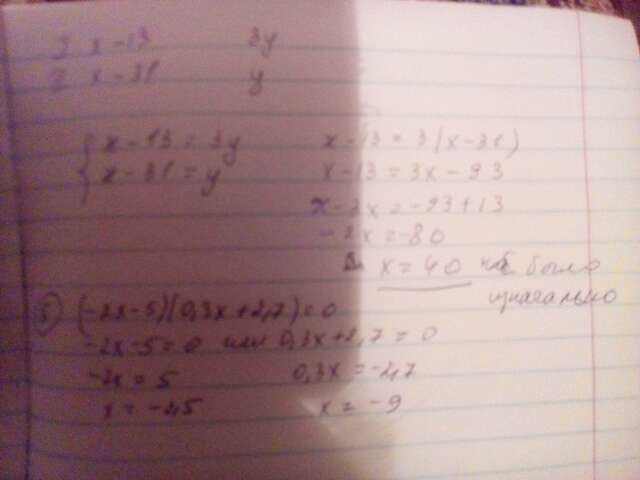 I x-13 3y
II x-31 y
x-13=3y
x-31=y
x-13=3(x-31)
x-13=3x-93
x-3x=-93+13
-2x=-80
x=40 было
изначально
(-2x-5)(0,3x+2,7)=0
-2x-5=0 или 0,3x+2,7=0
-2x=5 0,3x=-2,7
x=-2,5 x=-9